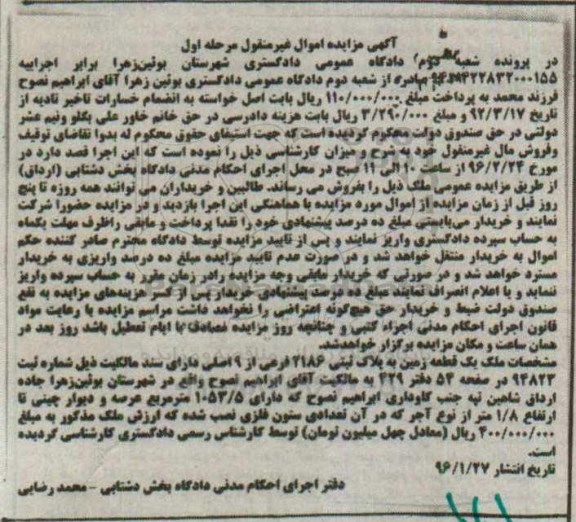 آگهی مزایده اموال غیرمنقول مرحله اول
در پرونده شعبه دوم دادگاه عمومی دادگستری شهرستان بوئین‌زهرا برابر اجراییه
صادره از شعبه دوم دادگاه عمومی دادگستری بوئین زهرا آقای ابراهیم نصوح
فرزند محمد به پرداخت مبلغ ۱۱۰/۰۰۰/۰۰۰ ریال بابت اصل خواسته به انضمام خسارات تاخیر تادیه از
تاریخ ۹۲/۳/۱۷ و مبلغ ۳/۲۹۰/۰۰۰ ریال بابت هزینه دادرسی در حق خانم خاور علی بگلو ونیم عشر
دولتی در حق صندوق دولت محکوم گردیده است که جهت استیفای حقوق محکوم له بدوا تقاضای توقیف
وفروش مال غیرمنقول خود به شرح و میزان کارشناسی ذیل را نموده است که این اجرا قصد دارد در
مورخ ۹۶/۲/۲۳ از ساعت ۱۰ الی ۱۱ صبح در محل اجرای احکام مدنی دادگاه بخش دشتابی (ارداق)
از طریق مزایده عمومی ملک ذیل را بفروش می رساند. طالبین و خریداران می توانند همه روزه تا پنج
روز قبل از زمان مزایده از اموال مورد مزایده با هماهنگی این اجرا بازدید و در مزایده حضورا شرکت
نمایند و خریدار می‌بایستی مبلغ ده درصد پیشنهادی خود را نقدا پرداخت و مابقی راظرف مهلت یکماه
به حساب سپرده دادگستری واریز نمایند و پس از تایید مزایده توسط دادگاه محترم صادر کننده حکم
اموال به خریدار منتقل خواهد شد و در صورت عدم تایید مزایده مبلغ ده درصد واریزی به خریدار
مسترد خواهد شد و در صورتی که خریدار مابقی وجه مزایده رادر زمان مقرر به حساب سپرده واریز
ننماید و یا اعلام انصراف نمایند مبلغ ده درصد پیشنهادی خریدار پس از کسر هزینه‌های مزایده به نفع
صندوق دولت ضبط و خریدار حق هیچ‌گونه اعتراضی را نخواهد داشت مراسم مزایده با رعایت مواد
قانون اجرای احکام مدنی اجراء گتبی و چنانچه روز مزایده مصادف با ایام تعطیل باشد روز بعد در
همان ساعت و مکان مزایده برگزار خواهدشد.
مشخصات ملک یک قطعه زمین به پلاک ثبتی ۲۱۸۶ فرعی از ۹ اصلی دارای سند مالکیت ذیل شماره ثبت
۹۴۸۲۳ در صفحه ۵۴ دفتر ۴۲۹ به مالکیت آقای ابراهیم نصوح واقع در شهرستان بوئین‌زهرا جاده
ارداق شاهین تپه جنب گاوداری ابراهیم نصوح که دارای ۱۰۵۳/۵ مترمربع عرصه و دیوار چینی تا
ارتفاع ۱/۸ متر از نوع آجر که در آن تعدادی ستون فلزی نصب شده که ارزش ملک مذکور به مبلغ
۴۰۰/۰۰۰/۰۰۰ ریال (معادل چهل میلیون تومان) توسط کارشناس رسمی دادگستری کارشناسی گردیده
است.
تاریخ انتشار ۹۶/۱/۲۷
دفتر اجرای احکام مدنی دادگاه بخش دشتابی - محمد رضایی